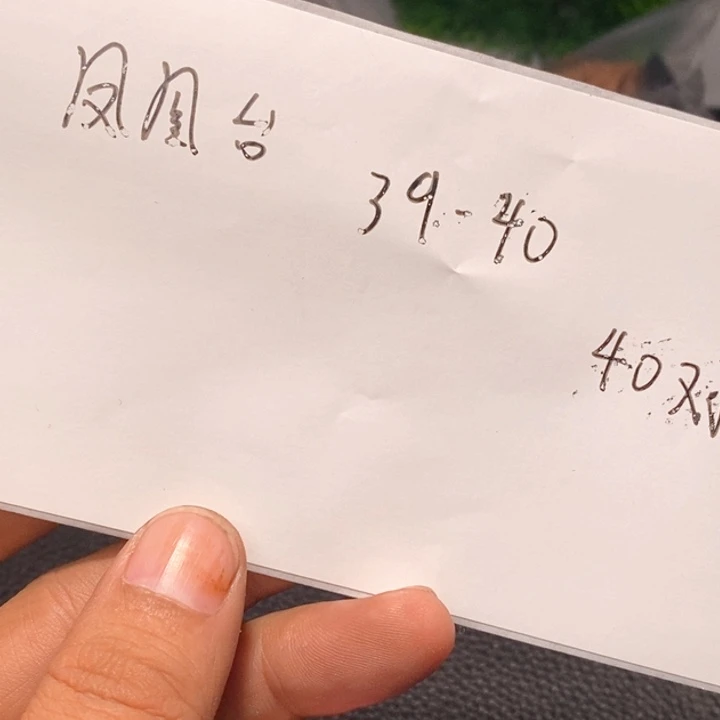 凤凰台
39-40
40双